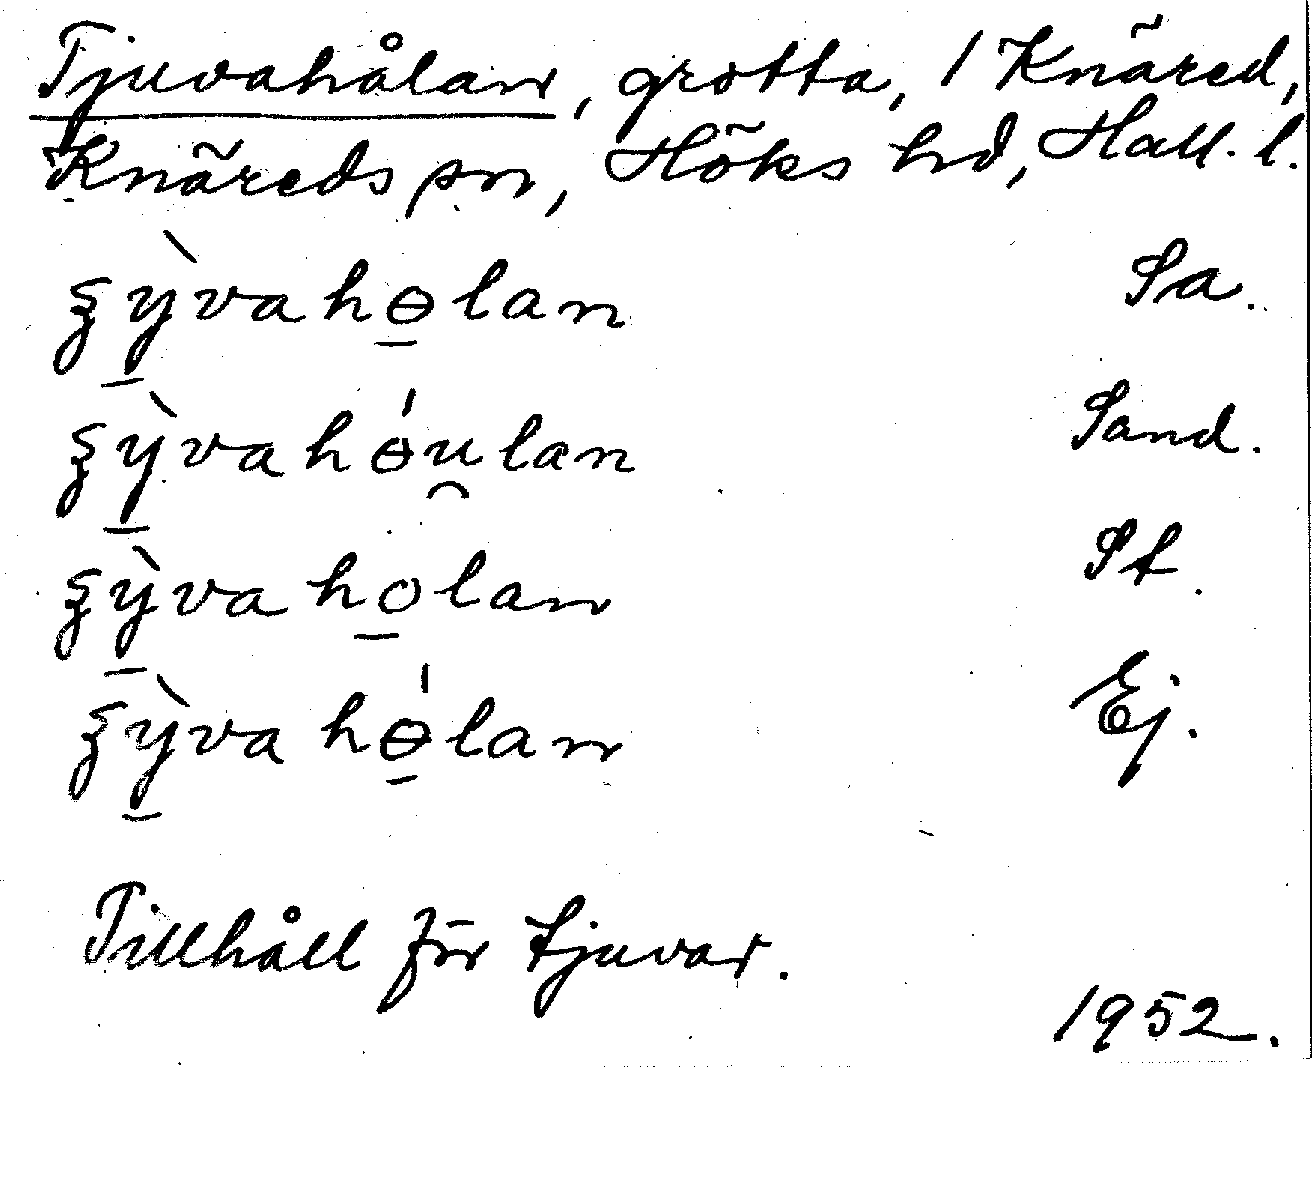 Tjuvahålan, grotta, 1 Knäred,
Knäreds sn, Höks hd, Hall. l.
ʒỳ̠vahɵ̠lan Sa.
ʒỳ̠vahɵ́u̯lan Sand.
ʒỳ̠vaho̠lan St.
ʒỳ̠vahɵ̠́lan Ej.
Tillhåll för tjuvar.
1952.